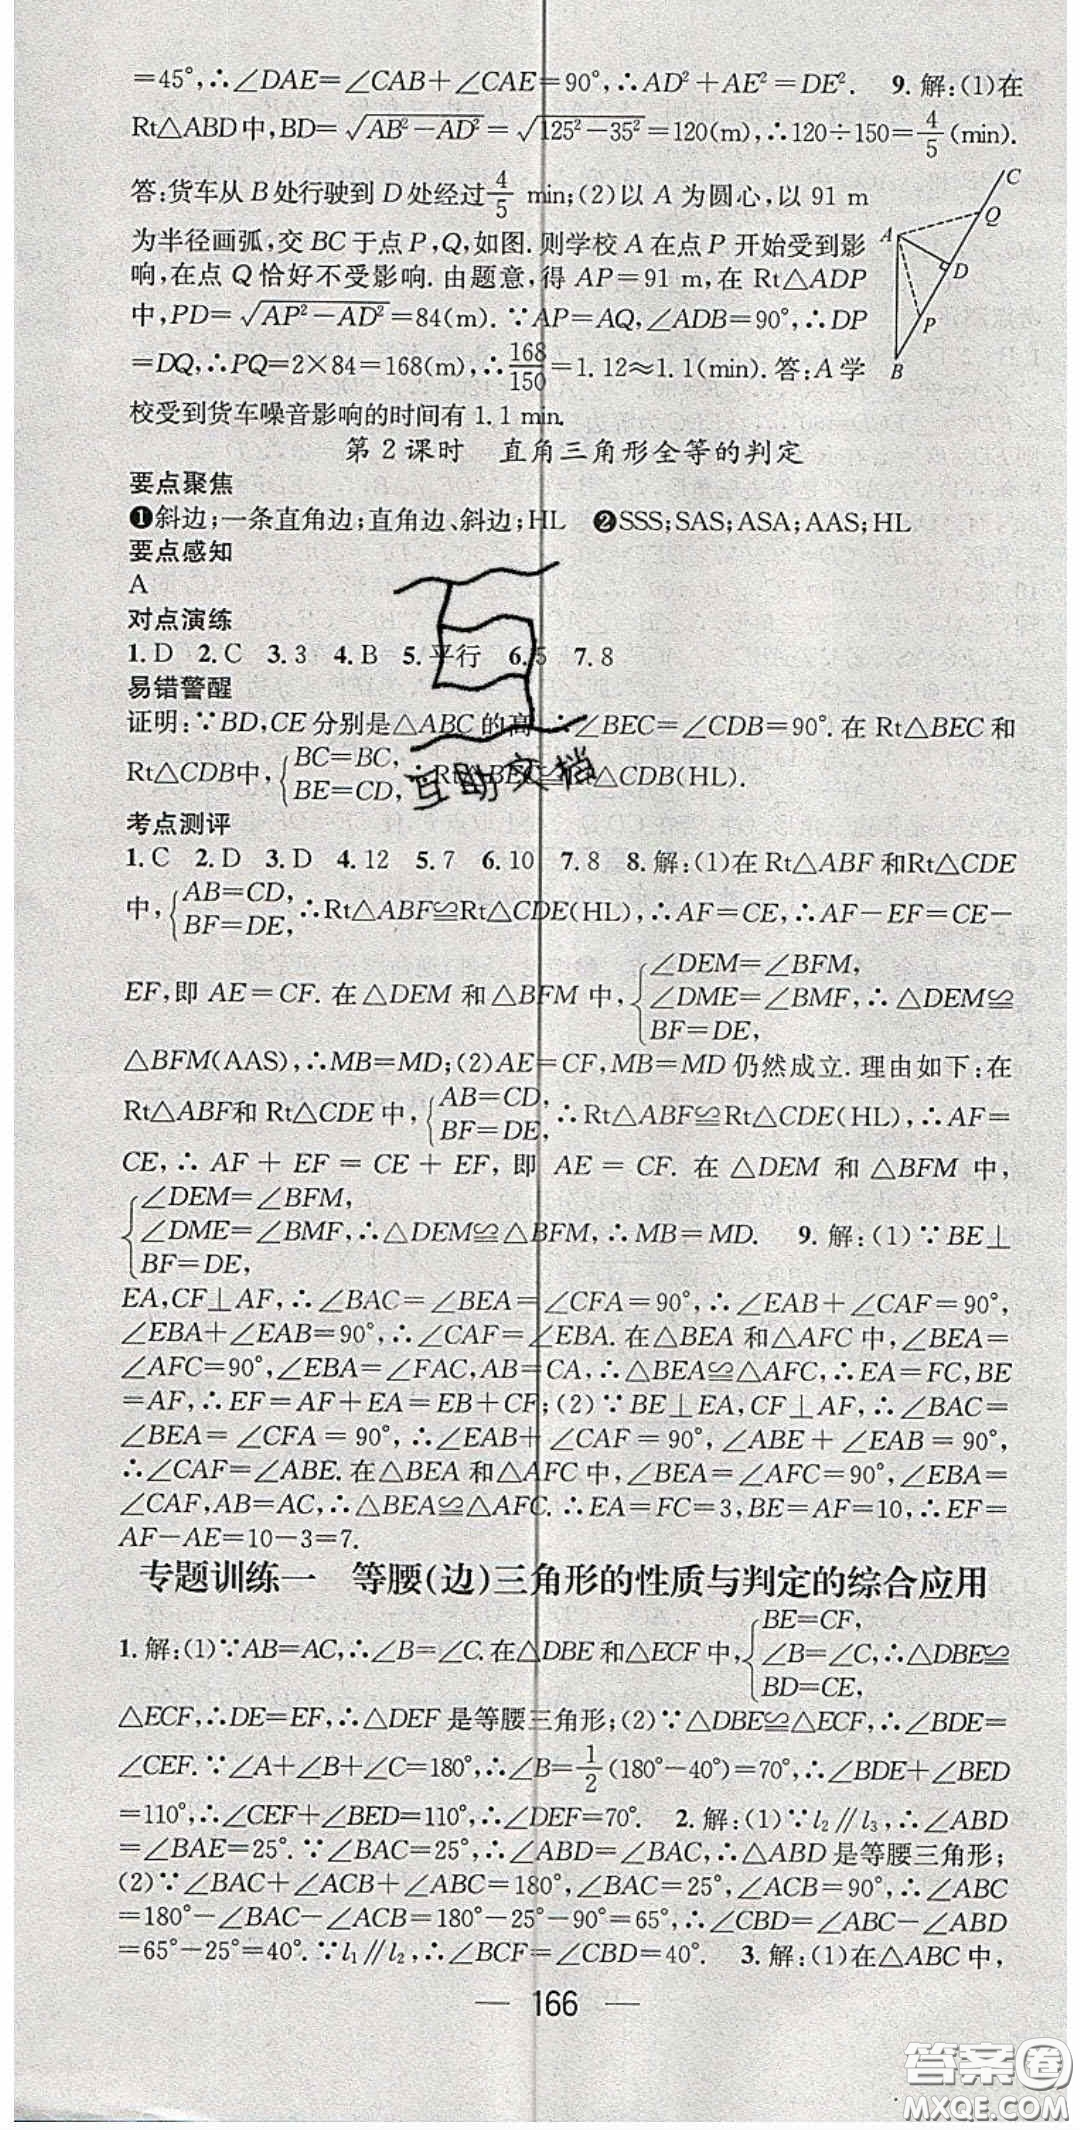 =45°,∴∠DAE=∠CAB+∠CAE=90°,∴AD²+AE²=DE². 9. 解:(1)在
Rt△ABD中,BD=√(AB²-AD²)=√(125²-35²)=120(m),∴120÷150=4/5(min).
答:货车从B处行驶到D处经过4/5 min;(2)以A为圆心,以91 m
为半径画弧,交BC于点P,Q,如图. 则学校A在点P开始受到影
响,在点Q恰好不受影响. 由题意,得AP=91 m,在Rt△ADP
中,PD=√(AP²-AD²)=84(m). ∵AP=AQ,∠ADB=90°,∴DP
=DQ,∴PQ=2×84=168(m),∴168/150=1.12≈1.1(min). 答:A学
校受到货车噪音影响的时间有1.1 min.
C
Q
A
D
P
B
第2课时 直角三角形全等的判定
要点聚焦
❶斜边;一条直角边;直角边、斜边;HL ❷SSS;SAS;ASA;AAS;HL
要点感知
A
对点演练
1. D 2. C 3. 3 4. B 5. 平行 6. 5 7. 8
易错警醒
证明:∵BD,CE分别是△ABC的高,∴∠BEC=∠CDB=90°. 在Rt△BEC和
Rt△CDB中,{BC=BC, BE=CD,∴Rt△BEC≌Rt△CDB(HL).
互助文档
考点测评
1. C 2. D 3. D 4. 12 5. 7 6. 10 7. 8 8. 解:(1)在Rt△ABF和Rt△CDE
中,{AB=CD, BF=DE,∴Rt△ABF≌Rt△CDE(HL),∴AF=CE,∴AF-EF=CE-
EF,即AE=CF. 在△DEM和△BFM中,{∠DEM=∠BFM, ∠DME=∠BMF, BF=DE,∴△DEM≌
△BFM(AAS),∴MB=MD;(2)AE=CF,MB=MD仍然成立. 理由如下:在
Rt△ABF和Rt△CDE中,{AB=CD, BF=DE,∴Rt△ABF≌Rt△CDE(HL),∴AF=
CE,∴AF+EF=CE+EF,即AE=CF. 在△DEM和△BFM中,
{∠DEM=∠BFM, ∠DME=∠BMF, BF=DE,∴△DEM≌△BFM,∴MB=MD. 9. 解:(1)∵BE⊥
EA,CF⊥AF,∴∠BAC=∠BEA=∠CFA=90°,∴∠EAB+∠CAF=90°,
∠EBA+∠EAB=90°,∴∠CAF=∠EBA. 在△BEA和△AFC中,∠BEA=
∠AFC=90°,∠EBA=∠FAC,AB=CA,∴△BEA≌△AFC,∴EA=FC,BE
=AF,∴EF=AF+EA=EB+CF;(2)∵BE⊥EA,CF⊥AF,∴∠BAC=
∠BEA=∠CFA=90°,∴∠EAB+∠CAF=90°,∠ABE+∠EAB=90°,
∴∠CAF=∠ABE. 在△BEA和△AFC中,∠BEA=∠AFC=90°,∠EBA=
∠CAF,AB=AC,∴△BEA≌△AFC. ∴EA=FC=3,BE=AF=10,∴EF=
AF-AE=10-3=7.
专题训练一 等腰(边)三角形的性质与判定的综合应用
1. 解:(1)∵AB=AC,∴∠B=∠C. 在△DBE和△ECF中,{BE=CF, ∠B=∠C, BD=CE,∴△DBE≌
△ECF,∴DE=EF,∴△DEF是等腰三角形;(2)∵△DBE≌△ECF,∴∠BDE=
∠CEF. ∵∠A+∠B+∠C=180°,∴∠B=1/2(180°-40°)=70°,∴∠BDE+∠BED
=110°,∴∠CEF+∠BED=110°,∴∠DEF=70°. 2. 解:(1)∵l₂∥l₃,∴∠ABD
=∠BAE=25°. ∵∠BAC=25°,∴∠ABD=∠BAC,∴△ABD是等腰三角形;
(2)∵∠BAC+∠ACB+∠ABC=180°,∠BAC=25°,∠ACB=90°,∴∠ABC
=180°-∠BAC-∠ACB=180°-25°-90°=65°,∴∠CBD=∠ABC-∠ABD
=65°-25°=40°. ∵l₁∥l₂,∴∠BCF=∠CBD=40°. 3. 解:(1)在△ABC中,
— 166 —
答案圈
MXQE.COM